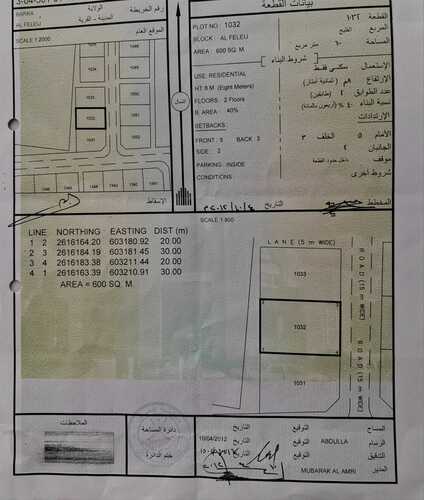 رقم الخريطة
الولاية
BARKA
المدينة - القرية
AL FELEIJ
SCALE 1:2500
الموقع العام
1033
1032
1031
الشمال
الإسقاط
بيانات القطعة
PLOT NO : 1032
القطعة ١٠٣٢
BLOCK : AL FELEIJ
المربع الفليج
AREA : 600 SQ. M
المساحة ٦٠٠ متر مربع
شروط البناء
USE: RESIDENTIAL
الإستعمال سكني فقط
HT 8 M (Eight Meters)
الإرتفاع ٨م (ثمانية امتار)
FLOORS: 2 Floors
عدد الطوابق ٢ (طابقين)
B. AREA : 40%
نسبة البناء ٤٠ % (أربعون بالمائة)
SETBACKS:
الإرتدادات
FRONT : 5 BACK : 3
الأمام ٥ الخلف ٣
SIDE : 2
الجانبان ٢
PARKING : INSIDE
موقف داخل حدود القطعة
CONDITIONS :
شروط اخرى
المخطط
التاريخ
SCALE 1:500
LINE NORTHING EASTING DIST (m)
1 2 2616164.20 603180.92 20.00
2 3 2616184.19 603181.45 30.00
3 4 2616183.38 603211.44 20.00
4 1 2616163.39 603210.91 30.00
AREA = 600 SQ. M
LANE (5 m WIDE)
1033
1032
1031
ROAD (15 m WIDE)
ROAD (15 m WIDE)
الملاحظات
دائرة المساحة
ختم الدائرة
المساح
التوقيع
التاريخ
الرسام
ABDULLA
التوقيع
التاريخ
19/04/2012
التدقيق
التوقيع
التاريخ
المدير
MUBARAK AL AMRI